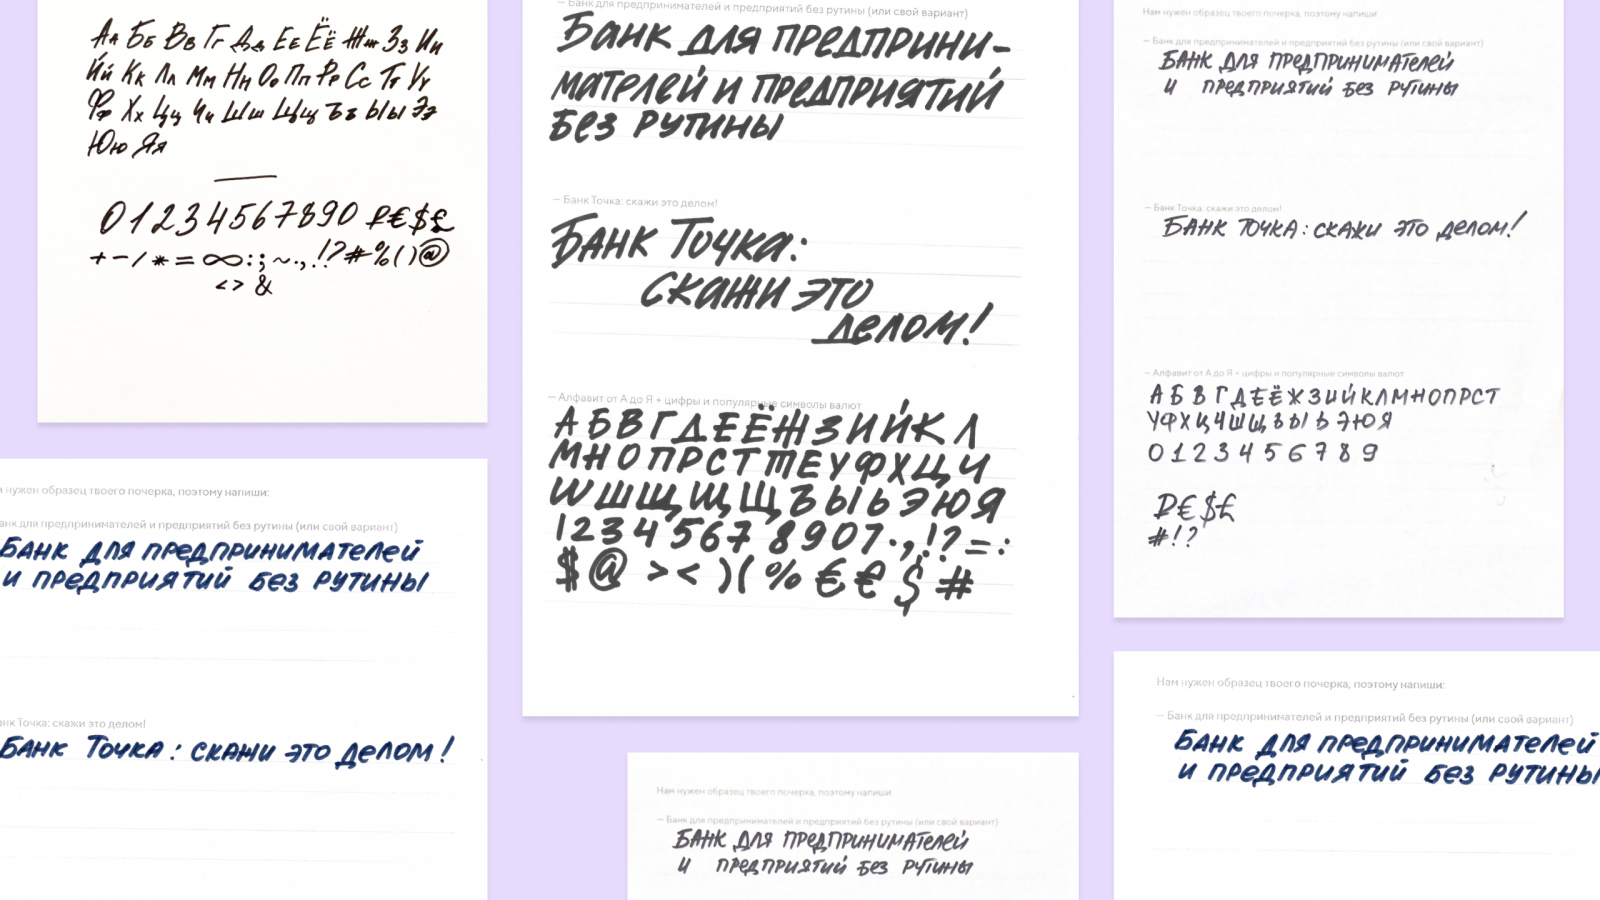 Аа Бб Вв Гг Дд Ее Ёё Жж Зз Ии
Йй Кк Лл Мм Нн Оо Пп Рр Сс Тт Уу
Фф Хх Цц Чч Шш Щщ Ъъ Ыы Ээ
Юю Яя
01234567890 ₽€$£
+-/*=∞:;~.,!?#%()@
<> &
нужен образец твоего почерка, поэтому напиши:
анк для предпринимателей и предприятий без рутины (или свой вариант)
Банк для предпринимателей
и предприятий без рутины
нк Точка: скажи это делом!
Банк Точка: скажи это делом!
— Банк для предпринимателей и предприятий без рутины (или свой вариант)
Банк для предприни-
мателей и предприятий
без рутины
— Банк Точка: скажи это делом!
Банк Точка:
скажи это
делом!
— Алфавит от А до Я + цифры и популярные символы валют
АБВГДЕЁЖЗИЙКЛ
МНОПРСТТЕУФХЦЧ
ШШЩЩЩЪЫЬЭЮЯ
1234567 8907.,!?=:
$@ >< )( % € € $ #
Нам нужен образец твоего почерка, поэтому напиши
— Банк для предпринимателей и предприятий без рутины (или свой вариант)
Банк для предпринимателей
и предприятий без рутины
Нам нужен образец твоего почерка, поэтому напиши
— Банк для предпринимателей и предприятий без рутины (или свой вариант)
Банк для предпринимателей
и предприятий без рутины
— Банк Точка: скажи это делом!
Банк Точка: скажи это делом!
— Алфавит от А до Я + цифры и популярные символы валют
АБВГДЕЁЖЗИЙКЛМНОПРСТ
УФХЦЧШЩЪЫЬЭЮЯ
0123456789
₽€$£
#!?
Нам нужен образец твоего почерка, поэтому напиши:
— Банк для предпринимателей и предприятий без рутины (или свой вариант)
Банк для предпринимателей
и предприятий без рутины